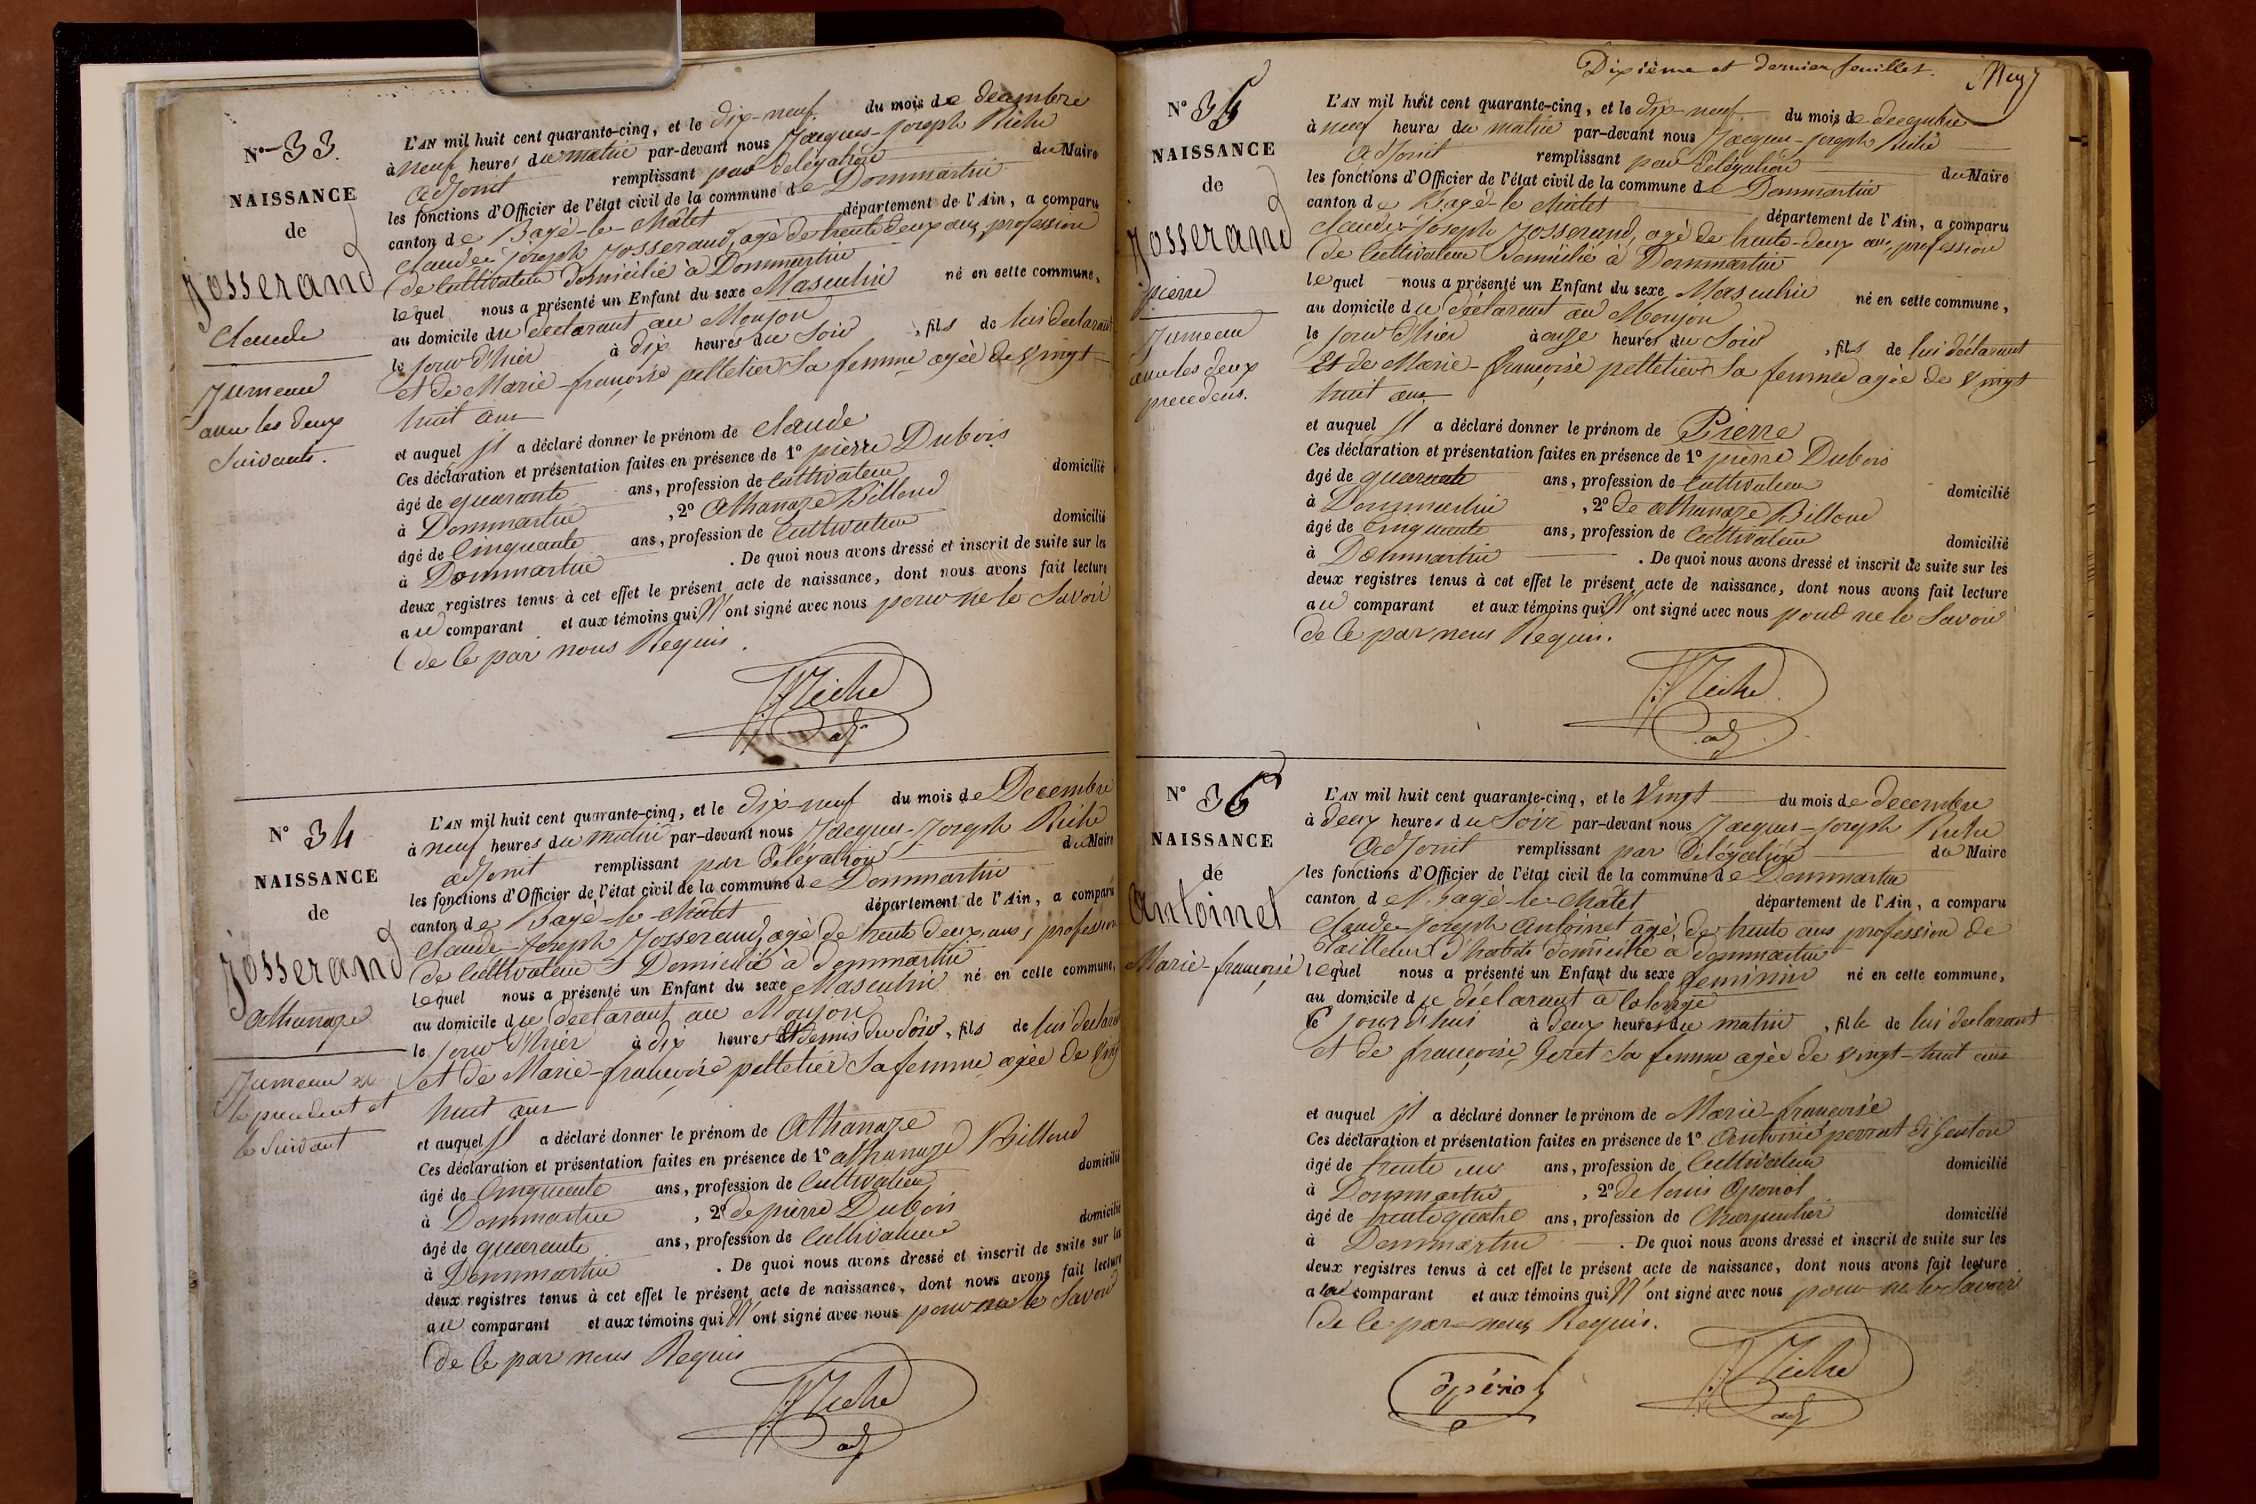 N° 33.
NAISSANCE
de
Josserand
Claude
Jumeau
avec les deux
Suivants.
L'AN mil huit cent quarante-cinq, et le dix-neuf du mois de decembre
à neuf heures du matin par-devant nous Jacques-Joseph Riche
adjoint remplissant par délégation du Maire
les fonctions d'Officier de l'état civil de la commune de Dommartin
canton de Bagé-le-Châtel département de l'Ain, a comparu
Claude joseph Josserand, agé de trente deux ans, profession
de Cultivateur domicilié à Dommartin
lequel nous a présenté un Enfant du sexe Masculin né en cette commune,
au domicile du declarant au Monjon
le jour d'hier à dix heures du Soir, fils de lui declarant
et de Marie-françoise pelletier Sa femme agée de Vingt
huit ans
et auquel Il a déclaré donner le prénom de claude
Ces déclaration et présentation faites en présence de 1° pierre Dubois
âgé de quarante ans, profession de Cultivateur domicilié
à Dommartin, 2° Athanaze Billoud
âgé de Cinquante ans, profession de Cultivateur domicilié
à Dommartin. De quoi nous avons dressé et inscrit de suite sur les
deux registres tenus à cet effet le présent acte de naissance, dont nous avons fait lecture
au comparant et aux témoins qui N'ont signé avec nous pour ne le Savoir
de Ce par nous Requis.
Riche
adj
N° 34
NAISSANCE
de
Josserand
Athanaze
Jumeau
le precedent et
le Suivant
L'AN mil huit cent quarante-cinq, et le dix-neuf du mois de Decembre
à neuf heures du matin par-devant nous Jacques-Joseph Riche
adjoint remplissant par délégation du Maire
les fonctions d'Officier de l'état civil de la commune de Dommartin
canton de Bagé-le-châtel département de l'Ain, a comparu
Claude-Joseph Josserand, agé de trente deux ans, profession
de Cultivateur Domicilié à dommartin
lequel nous a présenté un Enfant du sexe Masculin né en cette commune,
au domicile du declarant au Monjon
le jour d'hier à dix heures et demis du Soir, fils de lui declarant
et de Marie-françoise pelletier Sa femme agée de Vingt
huit ans
et auquel Il a déclaré donner le prénom de Athanaze
Ces déclaration et présentation faites en présence de 1° athanaze Billoud
âgé de Cinquante ans, profession de Cultivateur domicilié
à Dommartin, 2° de pierre Dubois
âgé de quarante ans, profession de Cultivateur domicilié
à Dommartin. De quoi nous avons dressé et inscrit de suite sur les
deux registres tenus à cet effet le présent acte de naissance, dont nous avons fait lecture
au comparant et aux témoins qui N'ont signé avec nous pour ne le Savoir
de Ce par nous Requis
Riche
adj
Dixième et dernier feuillet.
N° 35
NAISSANCE
de
Josserand
pierre
Jumeau
avec les deux
precedens.
L'AN mil huit cent quarante-cinq, et le dix-neuf du mois de decembre
à neuf heures du matin par-devant nous Jacques-joseph Riche
adjoint remplissant par delégation du Maire
les fonctions d'Officier de l'état civil de la commune de Dommartin
canton de Bagé-le châtel département de l'Ain, a comparu
Claude-Joseph Josserand, agé de trente-deux ans, profession
de Cultivateur Domicilié à Dommartin
lequel nous a présenté un Enfant du sexe Masculin né en cette commune,
au domicile du déclarant au Monjon
le jour d'hier à onze heures du Soir, fils de lui déclarant
Et de Marie-françoise pelletier Sa femme agée de Vingt
huit ans
et auquel Il a déclaré donner le prénom de Pierre
Ces déclaration et présentation faites en présence de 1° pierre Dubois
âgé de quarante ans, profession de Cultivateur domicilié
à Dommartin, 2° de athanaze Billoud
âgé de Cinquante ans, profession de Cultivateur domicilié
à Dommartin. De quoi nous avons dressé et inscrit de suite sur les
deux registres tenus à cet effet le présent acte de naissance, dont nous avons fait lecture
au comparant et aux témoins qui N'ont signé avec nous pour ne le Savoir
de Ce par nous Requis.
Riche
adj
N° 36
NAISSANCE
de
Antoinet
Marie-françoise
L'AN mil huit cent quarante-cinq, et le Vingt du mois de decembre
à deux heures du Soir par-devant nous Jacques-joseph Riche
adjoint remplissant par délégation du Maire
les fonctions d'Officier de l'état civil de la commune de Dommartin
canton de Bagé-le-Châtel département de l'Ain, a comparu
Claude-Joseph Antoinet agé de trente ans profession de
Tailleur d'habits domicilié à dommartin
lequel nous a présenté un Enfant du sexe feminin né en cette commune,
au domicile du déclarant à
le jour d'hui à deux heures du matin, fille de lui declarant
et de françoise Sa femme agée de Vingt-huit ans
et auquel Il a déclaré donner le prénom de Marie-françoise
Ces déclaration et présentation faites en présence de 1° Antoine perrat
âgé de trente un ans, profession de Cultivateur domicilié
à Dommartin, 2° de louis
âgé de trente quatre ans, profession de Charpentier domicilié
à Dommartin. De quoi nous avons dressé et inscrit de suite sur les
deux registres tenus à cet effet le présent acte de naissance, dont nous avons fait lecture
au comparant et aux témoins qui N'ont signé avec nous pour ne le Savoir
de Ce par nous Requis.
Riche
adj